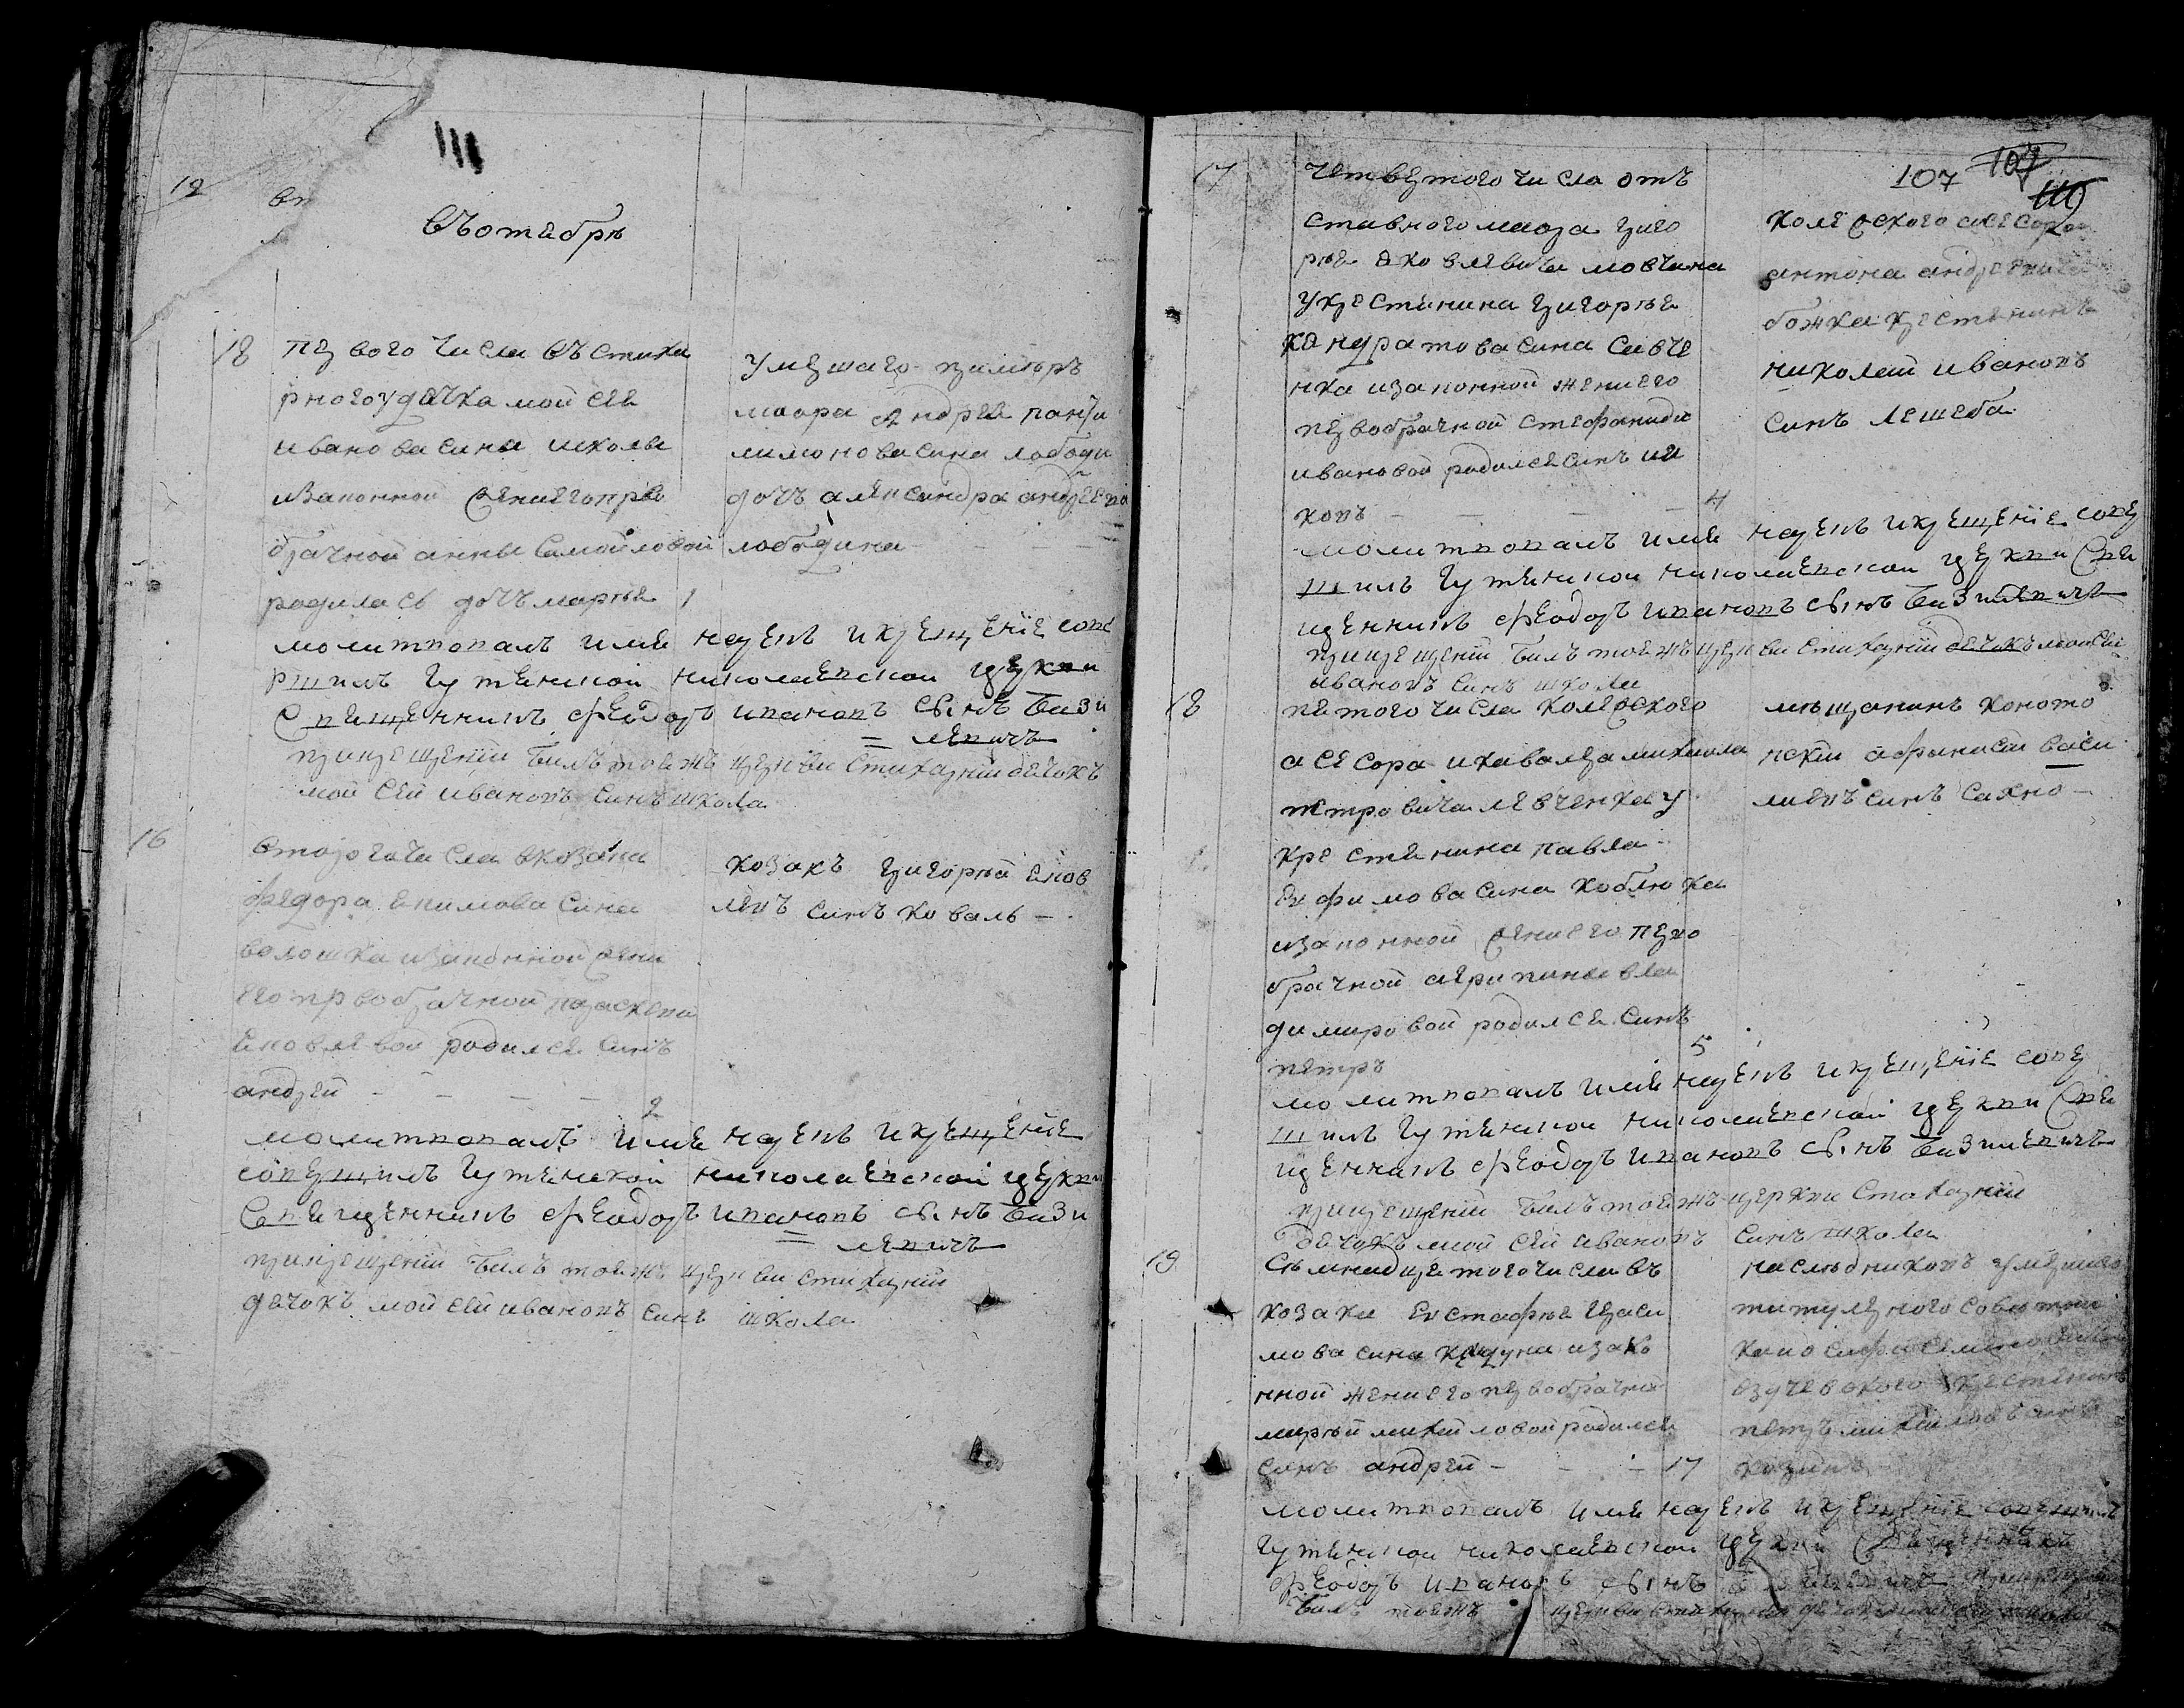 12
въотябрѣ
18
первого числа въстиха
рногоудячка мойсея
иванова сина школы
изаконной жениегопрво
брачной анны самойловой
родилась дочъ марья 1
умершаго примеръ
маора андрея панфи
лимонова сина лободи
дочъ александра андреева
лободина
молитвовалъ имя нарекъ и крещеніе сове
ршилъ гутянской николаевской церкви
Священникъ феодоръ ивановъ сынъ бази
левичъ
прикрещеніи былъ тояжъ церкви стихарніи дячокъ
мойсей ивановъ синъ школа
16
второгочисла вкозака
федора екимова сина
волошка изаконной жени
его првобрачной параскеви
яковлевой родился синъ
андрей 2
козакъ григорий яков
левъ синъ коваль
молитвовалъ имя нарекъ и крещеніе
совершилъ гутянской николаевской церкви
Священникъ феодоръ ивановъ сынъ бази
левичъ
прикрещеніи былъ тояжъ церкви стихарніи
дячокъ мойсей ивановъ синъ школа
107 107
17
четвертого числа отъ
ставного маора григо
рия яковлевича мовчана
укрестянина григорья
кандратова сина савче
нка изаконной жениего
первобрачной стефаниди
ивановой родился синъ ия
ковъ 4
колежского асесора
антона андреевича
божка крестянинъ
николай ивановъ
синъ лешеба
молитвовалъ имя нарекъ и крещеніе совер
шилъ гутянской николаевской церкви Свя
щенникъ феодоръ ивановъ сынъ базилевичъ
прикрещеніи былъ тояжъ церкви стихарніи дячокъ мойсей
ивановъ синъ школа
18
пятого числа колежского
асесора икавалера михаила
петровича левченка у
крестянина павла
ефимова сина коблюка
изаконной жениего перво
брачной агрипины вла
димировой родился синъ
петръ 5
мѣщанинъ коното
пскій афанасій васи
лиевъ синъ сахно
молитвовалъ имя нарекъ и крещеніе совер
шилъ гутянской николаевской церкви Свя
щенникъ феодоръ ивановъ сынъ базилевичъ
прикрещеніи былъ тояжъ церкви стихарніи
дячокъ мойсей ивановъ синъ школа
19
Семнадцятогочисла въ
козака евстафья
мова сина изако
нной жениего первобрачной
марьи михайловой родился
синъ андрей 17
наслѣдниковъ умершаго
титулярного совѣтни
ка
крестянинъ
петръ
молитвовалъ имя нарекъ и крещеніе совершилъ
гутянской николаевской церкви Священникъ
феодоръ ивановъ сынъ базилевичъ прикрещеніи
былъ тояжъ церкви стихарніи дячокъ